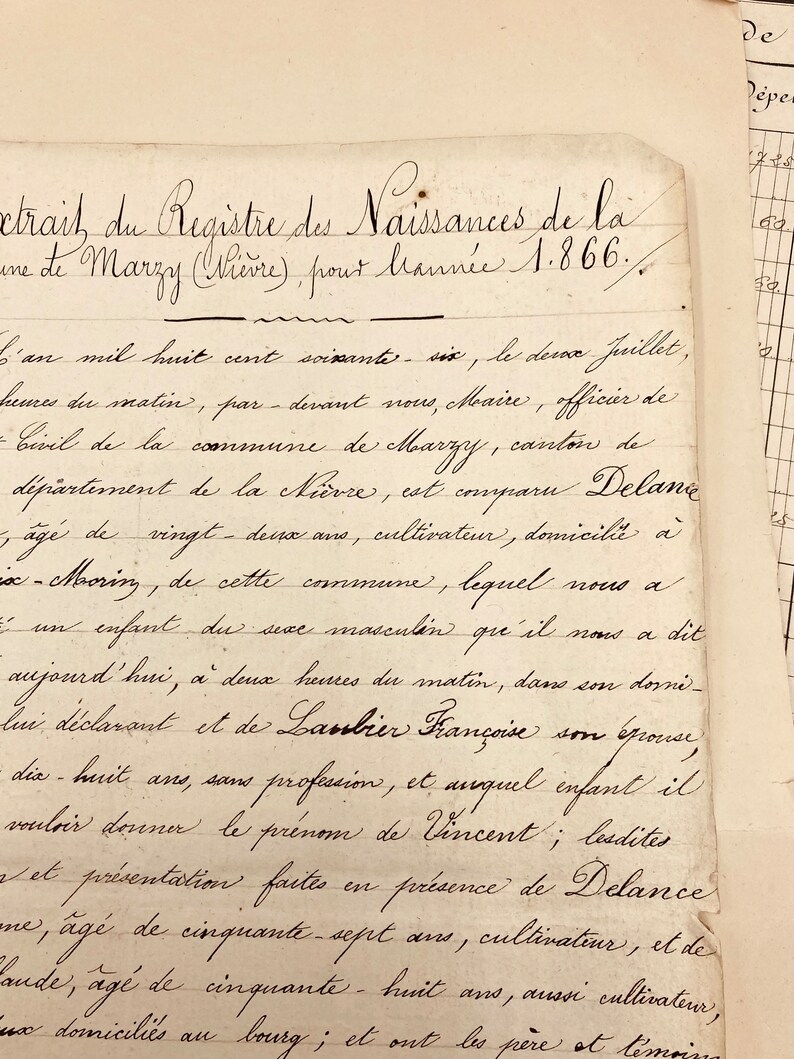 xtrait du Registre des Naissances de la
une de Marzy (Nièvre), pour l'année 1.866.
L'an mil huit cent soixante-six, le deux Juillet,
heures du matin, par-devant nous, Maire, officier de
t Civil de la commune de Marzy, canton de
département de la Nièvre, est comparu Delance
, âgé de vingt-deux ans, cultivateur, domicilié à
ix-Morin, de cette commune, lequel nous a
té un enfant du sexe masculin qu'il nous a dit
aujourd'hui, à deux heures du matin, dans son domi-
lui déclarant et de Laubier Françoise son épouse,
dix-huit ans, sans profession, et auquel enfant il
vouloir donner le prénom de Vincent ; lesdites
n et présentation faites en présence de Delance
me, âgé de cinquante-sept ans, cultivateur, et de
laude, âgé de cinquante-huit ans, aussi cultivateur,
ux domiciliés au bourg ; et ont les père et témoins
de
Dépe
725
60.
50.